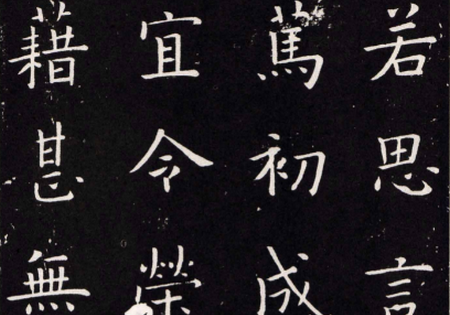 若思言
篤初成
宜令榮
藉甚無